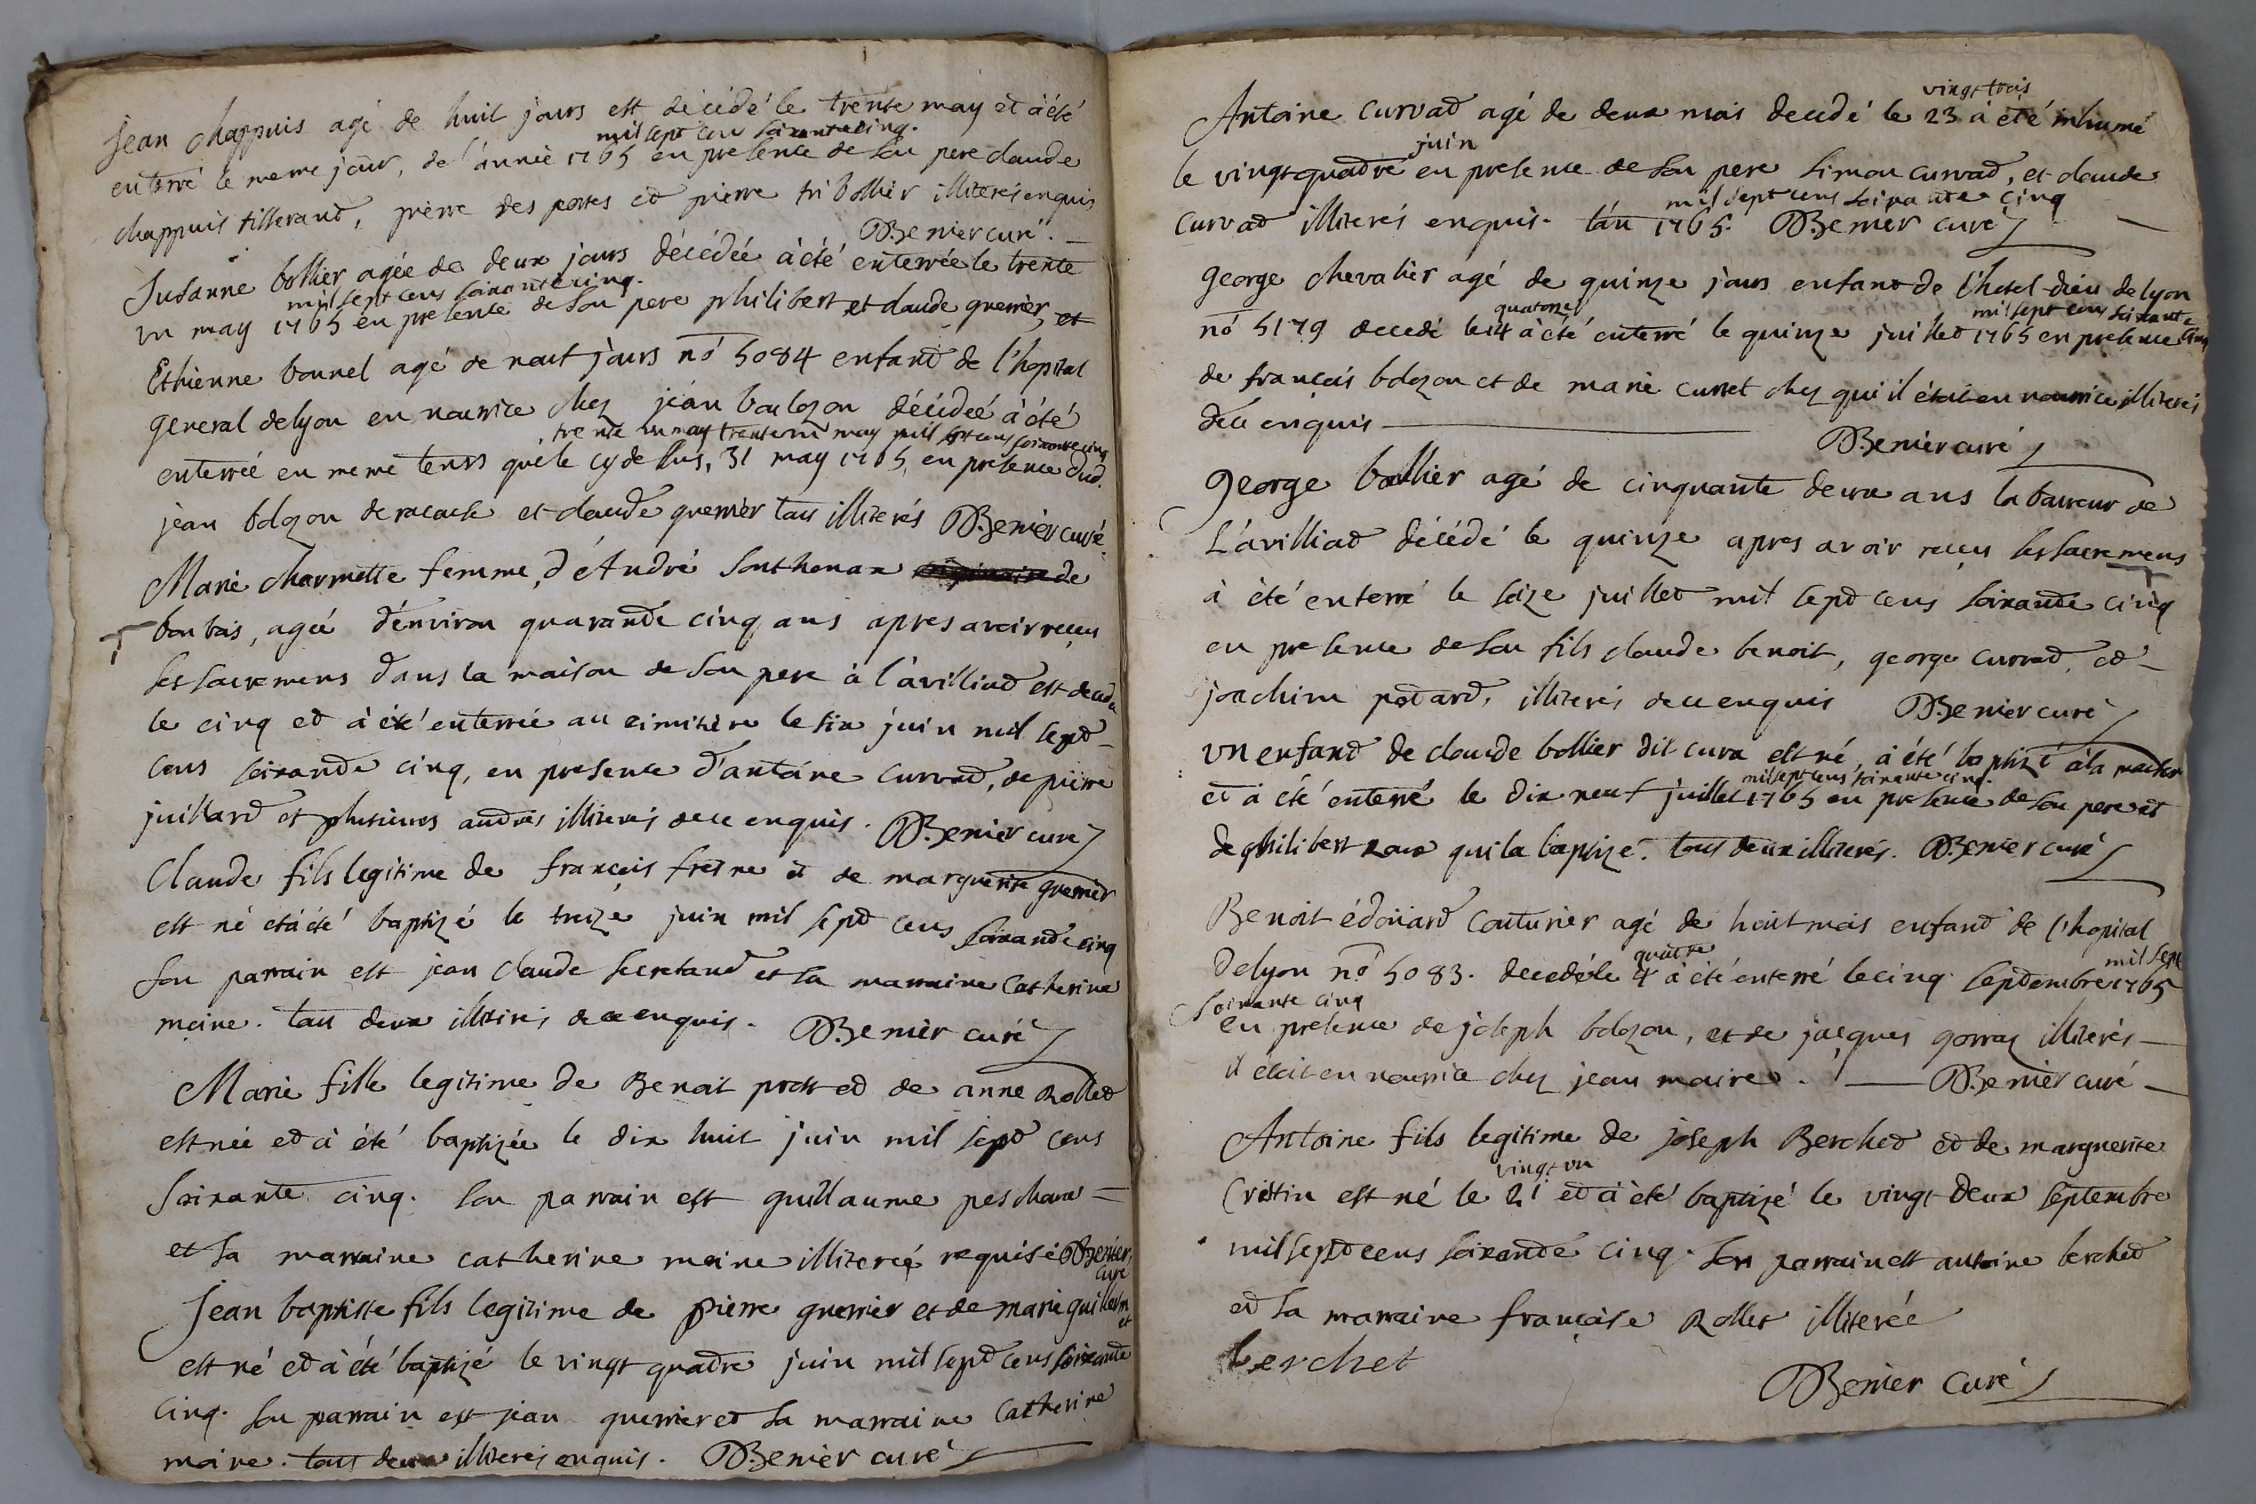 Jean chappuis agé de huit jours est décédé le trente may et à été
mil sept cens soixante cinq.
enterré le meme jour, de l'année 1765 en presence de son pere claude
chappuis tisserand, pierre des portes et pierre tribollier illiterés enquis
Benier curé.
Susanne bollier agée de deux jours décédée à été enterrée le trente
mil sept cens soixante cinq.
un may 1765 en presence de son pere philibert et claude guerrier, et
Ethienne bonnel agé de neuf jours nó 5084 enfant de l'hopital
general de lyon en nourrice chez jean bolozon décédeé à été
trente un may trente un may mil sept cens soixante cinq
enterreé en meme tems que le cy dessus, 31 may 1765, en presence dud.
jean bolozon de et claude guerrier tous illiterés Benier curé
Marie charmette femme d'André Sonthonax de
bonbois, ageé d'environ quarante cinq ans apres avoir reçeu
les sacremens dans la maison de son pere à l'àvilliad est decedeé
le cinq et à été enterrée au cimitière le six juin mil sept
cens soixante cinq, en presence d'antoine curvad, de pierre
juillard et plusieurs autres illiterés de ce enquis. Benier curé
Claude fils legitime de françois fresne et de marguerite guerrier
est né et à été baptizé le treize juin mil sept cens soixante cinq
son parrain est jean claude secretand et sa marraine Catherine
moine. tous deux illiterés de ce enquis. Benier curé
Marie fille legitime de Benoit prost et de anne Rollet
est née et à été baptizée le dix huit juin mil sept cens
soixante cinq. son parrain est guillaume peschoux
et sa marraine catherine moine illitereé requise Benier
curé
Jean baptiste fils legitime de pierre guerrier et de marie guillermet
est né et à été baptizé le vingt quatre juin mil sept cens soixante
cinq. son parrain est jean guerrier et sa marraine Catherine
moine. tous deux illiterés enquis. Benier curé
vingt trois
Antoine curvad agé de deux mois decedé le 23 à eté inhumé
juin
le vingt quatre en presence de son pere simon curvad, et claude
mil sept cens soixante cinq
curvad illiterés enquis. l'án 1765. Benier curé
george chevalier agé de quinze jours enfant de l'hotel-dieu de lyon
quatorze mil sept cens soixante
nó 5179 decedé le 14 à été enterré le quinze juillet 1765 en presence cinq
de françois bolozon et de marie curset chez qui il étoit en nourrice illiterés
de ce enquis
Benier curé
George bollier agé de cinquante deux ans laboureur de
L'àvilliad décédé le quinze apres avoir reçeu les sacremens
à été enterré le seize juillet mil sept cens soixante cinq
en presence de son fils claude benoit, george curvad, et
joachim potard, illiterés de ce enquis Benier curé
un enfand de claude bollier dit cura est né, à été baptizé à la maison
mil sept cens soixante cinq.
et à été enterré le dix neuf juillet 1765 en presence de son pere et
de philibert roux qui la baptizé. tous deux illiterés. Benier curé
Benoit édoüard couturier agé de huit mois enfand de l'hopital
quatre mil sept
De lyon nó 5083. decedé le 4 à été enterré le cinq septembre 1765
soixante cinq
en presence de joseph bolozon, et de jacques gorraz illiterés
il étoit en nourrice chez jean maire. Benier curé
Antoine fils legitime de joseph Berchet et de marguerite
vingt un
Cristin est né le 21 et à été baptizé le vingt-deux septembre
mil sept cens soixante cinq. son parrain est antoine berchet
et sa marraine françoise Rollet illiterée
berchet
Benier curé